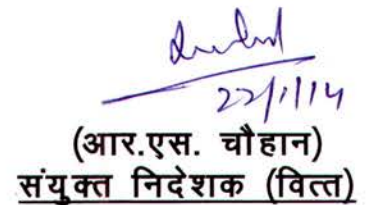 22/1/14
(आर.एस. चौहान)
संयुक्त निदेशक (वित्त)